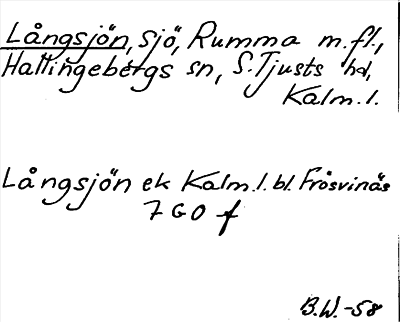 Långsjön, sjö, Rumma m.fl.,
Hallingebergs sn, S. Tjusts hd,
Kalm. l.
Långsjön ek Kalm. l. bl. Frösvinäs
7 G O f
B.W. -58